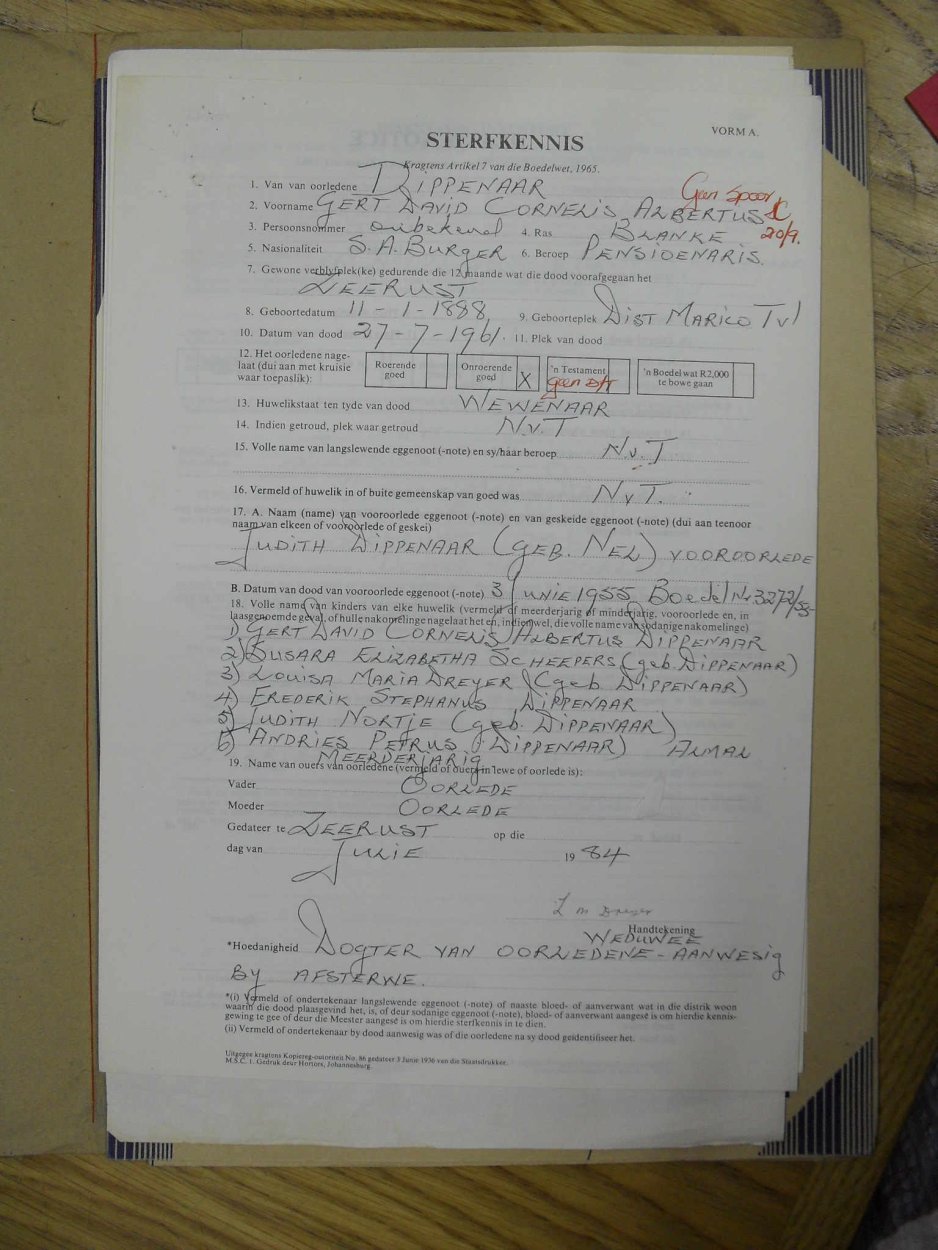 VORM A.
STERFKENNIS
Kragtens Artikel 7 van die Boedelwet, 1965.
1. Van van oorledene DIPPENAAR
Geen Spoor
2. Voorname GERT DAVID CORNELIS ALBERTUS
20/9.
3. Persoonsnommer onbekend 4. Ras BLANKE
5. Nasionaliteit S.A. BURGER 6. Beroep PENSIOENARIS.
7. Gewone verblyfplek(ke) gedurende die 12 maande wat die dood voorafgegaan het
ZEERUST
8. Geboortedatum 11-1-1888 9. Geboorteplek DIST MARICO Tvl
10. Datum van dood 27-7-1961. 11. Plek van dood
12. Het oorledene nage-
laat (dui aan met kruisie
waar toepaslik):
Roerende
goed
Onroerende
goed X
'n Testament
geen
'n Boedel wat R2,000
te bowe gaan
13. Huwelikstaat ten tyde van dood WEWENAAR
14. Indien getroud, plek waar getroud N.v.T
15. Volle name van langslewende eggenoot (-note) en sy/haar beroep N.v.T
16. Vermeld of huwelik in of buite gemeenskap van goed was N v T.
17. A. Naam (name) van vooroorlede eggenoot (-note) en van geskeide eggenoot (-note) (dui aan teenoor
naam van elkeen of vooroorlede of geskei)
JUDITH DIPPENAAR (GEB. NEL) VOOROORLEDE
B. Datum van dood van vooroorlede eggenoot (-note) 3 JUNIE 1955 Boedel Nr. 3272/55
18. Volle name van kinders van elke huwelik (vermeld of meerderjarig of minderjarig, vooroorlede en, in
laasgenoemde geval, of hulle nakomelinge nagelaat het en, indien wel, die volle name van sodanige nakomelinge)
1) GERT DAVID CORNELIS ALBERTUS DIPPENAAR
2) SUSARA ELIZABETHA SCHEEPERS (geb. DIPPENAAR)
3) LOUISA MARIA DREYER (geb. DIPPENAAR)
4) FREDERIK STEPHANUS DIPPENAAR
5) JUDITH NORTJE (geb. DIPPENAAR)
6) ANDRIES PETRUS DIPPENAAR) ALMAL
MEERDERJARIG
19. Name van ouers van oorledene (vermeld of ouers in lewe of oorlede is):
Vader OORLEDE
Moeder OORLEDE
Gedateer te ZEERUST op die
dag van JULIE 19 84
L M Dreyer
Handtekening
WEDUWEE
*Hoedanigheid DOGTER VAN OORLEDENE - AANWESIG
BY AFSTERWE.
*(i) Vermeld of ondertekenaar langslewende eggenoot (-note) of naaste bloed- of aanverwant wat in die distrik woon
waarin die dood plaasgevind het, is, of deur sodanige eggenoot (-note), bloed- of aanverwant aangesê is om hierdie kennis-
gewing te gee of deur die Meester aangesê is om hierdie sterfkennis in te dien.
(ii) Vermeld of ondertekenaar by dood aanwesig was of die oorledene na sy dood geïdentifiseer het.
Uitgegee kragtens Kopiereg-outoriteit No. 86 gedateer 3 Junie 1936 van die Staatsdrukker.
M.S.C. 1. Gedruk deur Hortors, Johannesburg.